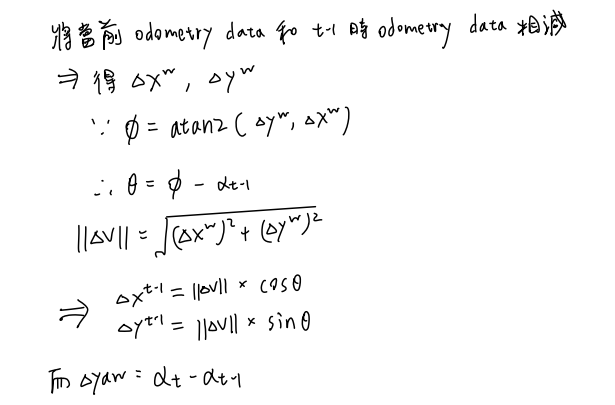 將當前 odometry data 和 t-1 時 odometry data 相減
⇒ 得 Δxʷ, Δyʷ
∵ φ = atan2(Δyʷ, Δxʷ)
∴ θ = φ - αt-1
||ΔV|| = √(Δxʷ)² + (Δyʷ)²
⇒ Δxᵗ⁻¹ = ||ΔV|| × cosθ
Δyᵗ⁻¹ = ||ΔV|| × sinθ
而 Δyaw = αt - αt-1